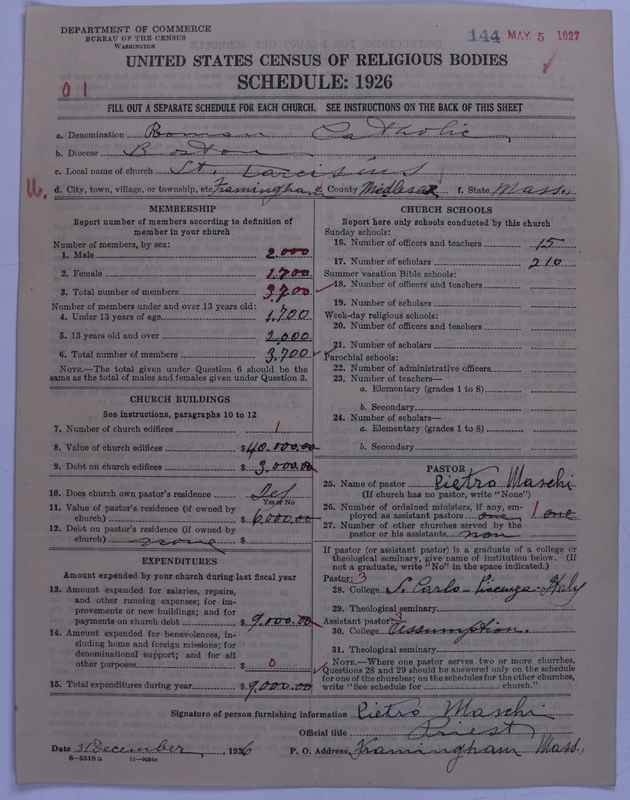 DEPARTMENT OF COMMERCE
BUREAU OF THE CENSUS
WASHINGTON
144 MAY 5 1927
UNITED STATES CENSUS OF RELIGIOUS BODIES
SCHEDULE: 1926
01
FILL OUT A SEPARATE SCHEDULE FOR EACH CHURCH. SEE INSTRUCTIONS ON THE BACK OF THIS SHEET
a. Denomination Roman Catholic
b. Diocese Boston
c. Local name of church St. Tarcisius
d. City, town, village, or township, etc. Framingham e. County Middlesex f. State Mass.
U.
MEMBERSHIP
Report number of members according to definition of
member in your church
Number of members, by sex:
1. Male 2.000
2. Female 1.700
3. Total number of members 3,700
Number of members under and over 13 years old:
4. Under 13 years of age 1.700
5. 13 years old and over 2,000
6. Total number of members 3.700
NOTE.—The total given under Question 6 should be the
same as the total of males and females given under Question 3.
CHURCH BUILDINGS
See instructions, paragraphs 10 to 12
7. Number of church edifices 1
8. Value of church edifices $40.000.00
9. Debt on church edifices $3,000.00
10. Does church own pastor's residence Yes
Yes or No
11. Value of pastor's residence (if owned by
church) $6,000.00
12. Debt on pastor's residence (if owned by
church) none $
EXPENDITURES
Amount expended by your church during last fiscal year
13. Amount expended for salaries, repairs,
and other running expenses; for im-
provements or new buildings; and for
payments on church debt $9.000.00
14. Amount expended for benevolences, in-
cluding home and foreign missions; for
denominational support; and for all
other purposes $0
15. Total expenditures during year $9,000.00
CHURCH SCHOOLS
Report here only schools conducted by this church
Sunday schools:
16. Number of officers and teachers 15
17. Number of scholars 210
Summer vacation Bible schools:
18. Number of officers and teachers
19. Number of scholars
Week-day religious schools:
20. Number of officers and teachers
21. Number of scholars
Parochial schools:
22. Number of administrative officers
23. Number of teachers—
a. Elementary (grades 1 to 8)
b. Secondary
24. Number of scholars—
a. Elementary (grades 1 to 8)
b. Secondary
PASTOR
25. Name of pastor Pietro Maschi
(If church has no pastor, write "None")
26. Number of ordained ministers, if any, em-
ployed as assistant pastors one 1 one
27. Number of other churches served by the
pastor or his assistants non
If pastor (or assistant pastor) is a graduate of a college or
theological seminary, give name of institution below. (If
not a graduate, write "No" in the space indicated.)
Pastor: 3
28. College S. Carlo - Piacenza - Italy
29. Theological seminary
Assistant pastor: 3
30. College Assumption.
31. Theological seminary
NOTE.—Where one pastor serves two or more churches,
Questions 28 and 29 should be answered only on the schedule
for one of the churches; on the schedules for the other churches,
write "See schedule for church."
Signature of person furnishing information Pietro Maschi
Official title Priest
Date 31 December, 1926 P. O. Address, Framingham Mass.,
8-5318a 11-9054a